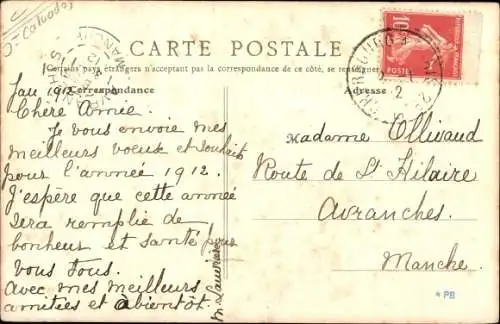 D. Calvados
CARTE POSTALE
Certains pays étrangers n'acceptant pas la correspondance de ce côté, se renseigner
Correspondance
Adresse
Jan 1912
Chère Amie.
Je vous envoie mes
meilleurs voeux et souhait
pour l'année 1912.
J'espère que cette année
sera remplie de
bonheur et santé pour
vous tous.
Avec mes meilleurs
amitiées et abientôt.
Madame Ollivaud
Route de St Hilaire
Avranches.
Manche.
10
POSTES
MANCHE
* PB